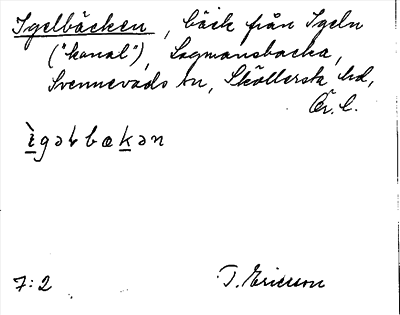 Igelbäcken, bäck från Igeln
("kanal"), Lagmansbacka,
Svennevads sn, Sköllersta hd,
Ör. l.
ìgəƚbœkən
7:2 T. Ericsson